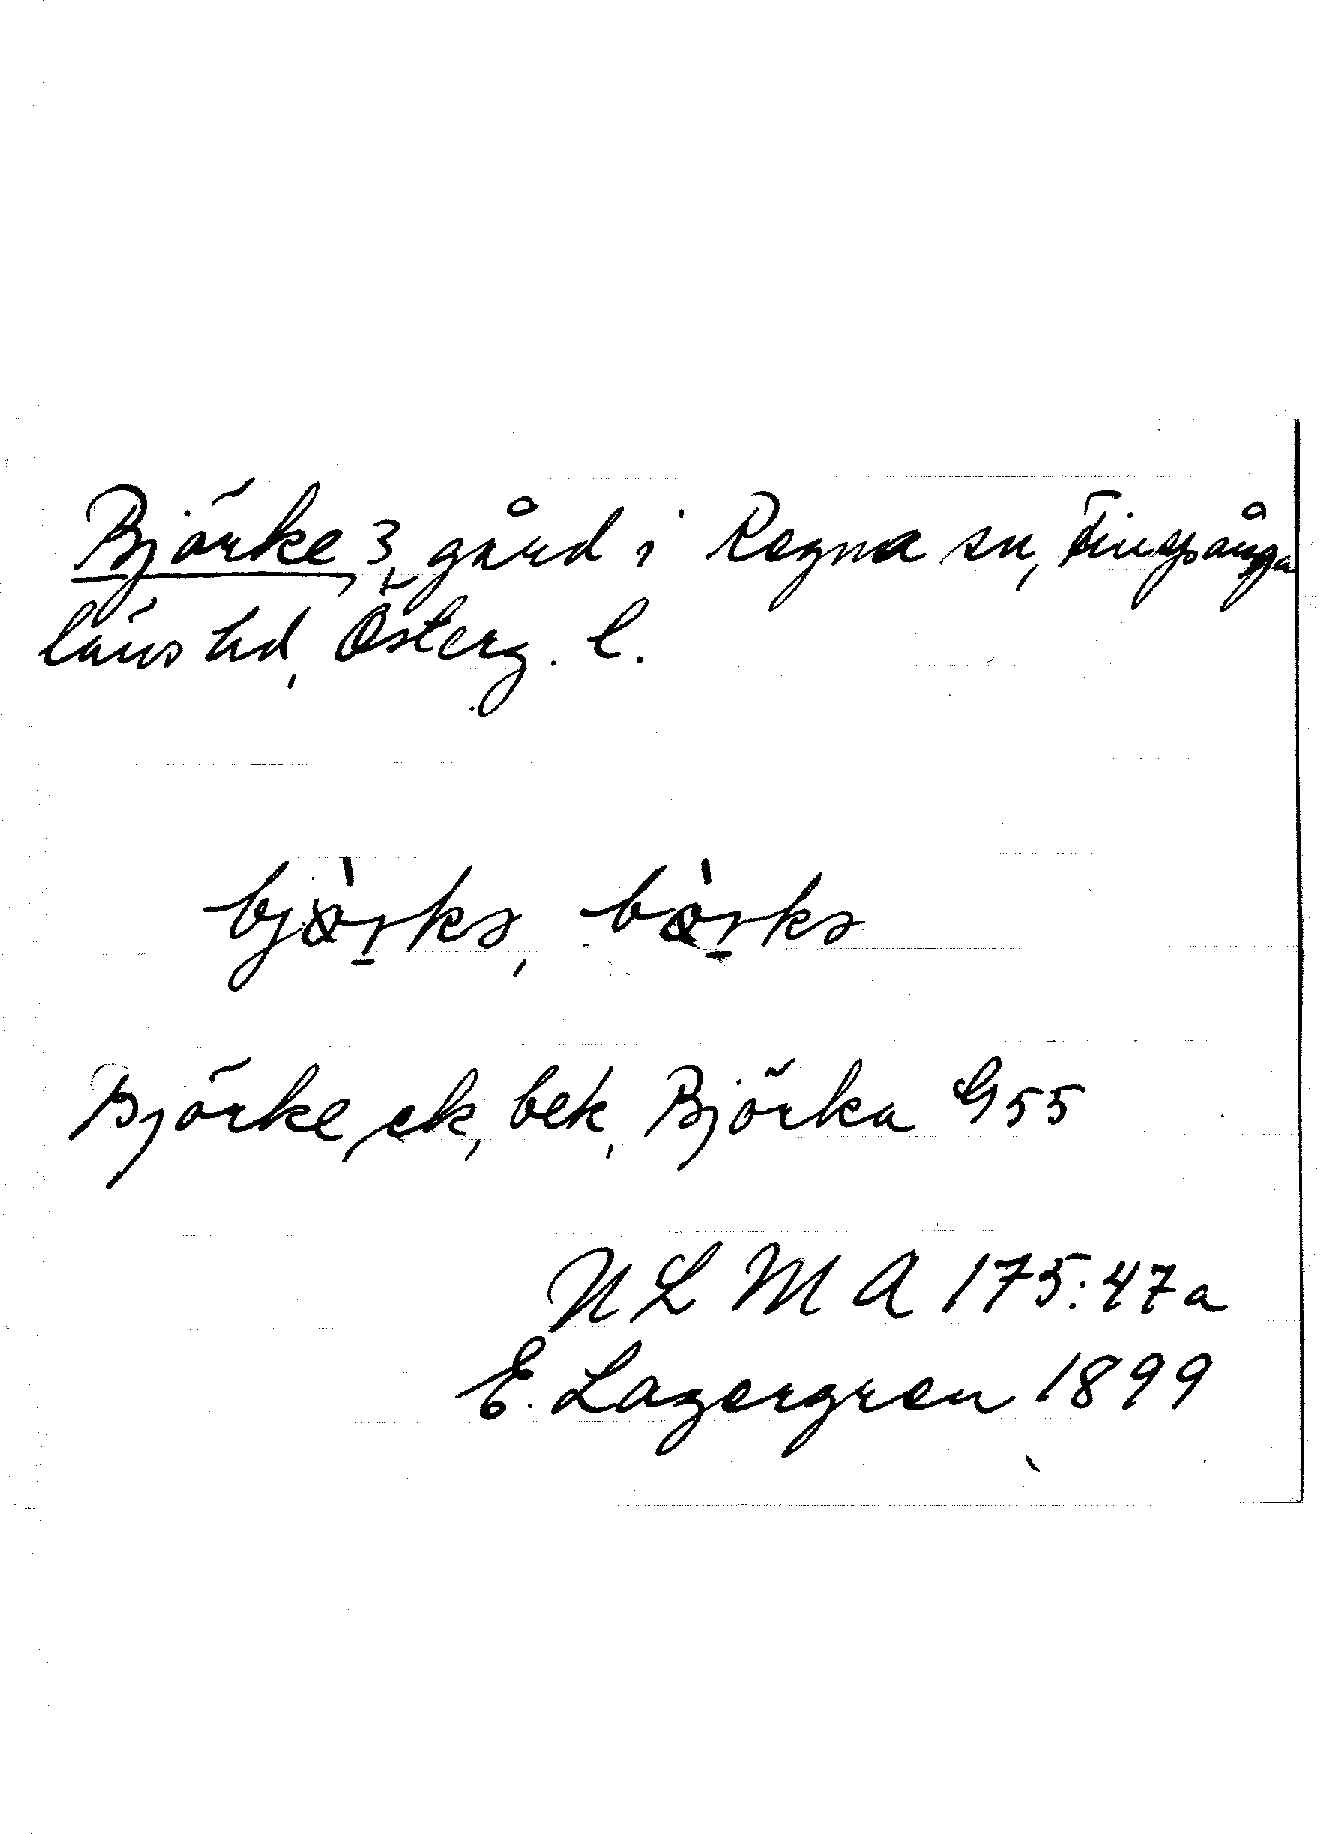 Björke, 3, gård i Regna sn, Finspånga
läns hd, Österg. l.
bjòrkə, bòrkə
Björke, ek, bek, Björka G 55
N L M A 175:47a
E. Lagergren 1899